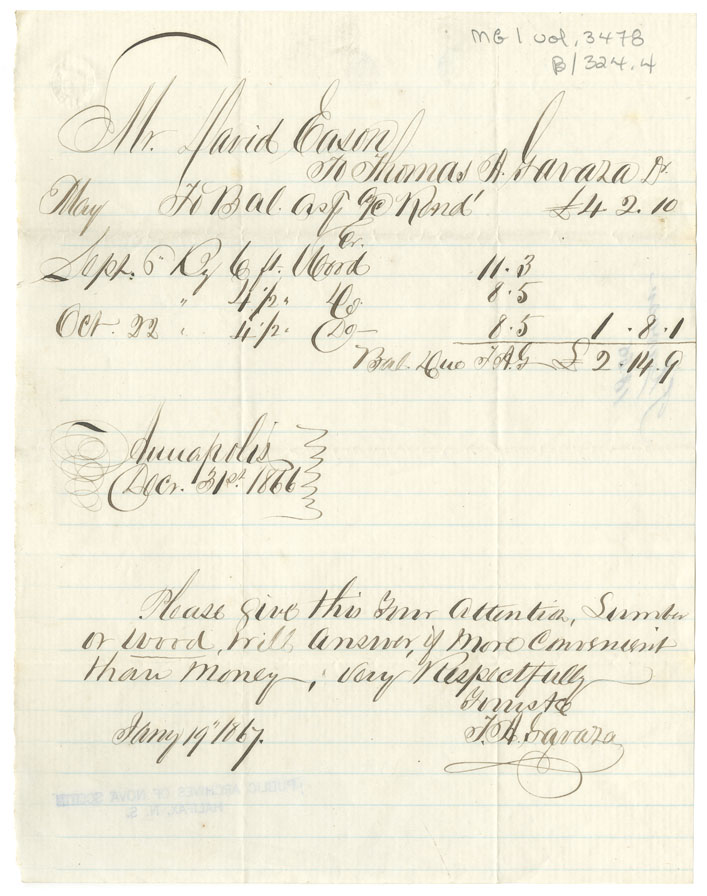 MG 1 vol. 3478
B/324.4
Mr. David Eason
To Thomas A. Gavaza Dr.
May To Bal. as ₽ a/c Rend' £4 2. 10
Cr.
Sept. 6 " By 6 ft. Wood 11. 3
" 4 1/2 " Do. 8. 5
Oct. 22 " 4 1/2 " Do — 8. 5 1. 8. 1
Bal. Due T.A.G £ 2. 14. 9
Annapolis
Decr. 31st 1866
Please give this Your Attention, Lumber
or Wood, Will Answer, if More Convenient
than Money, ; Very Respectfully
Yours &c
Jany 19" 1867. T. A. Gavaza
PUBLIC ARCHIVES OF NOVA SCOTIA
HALIFAX, N. S.